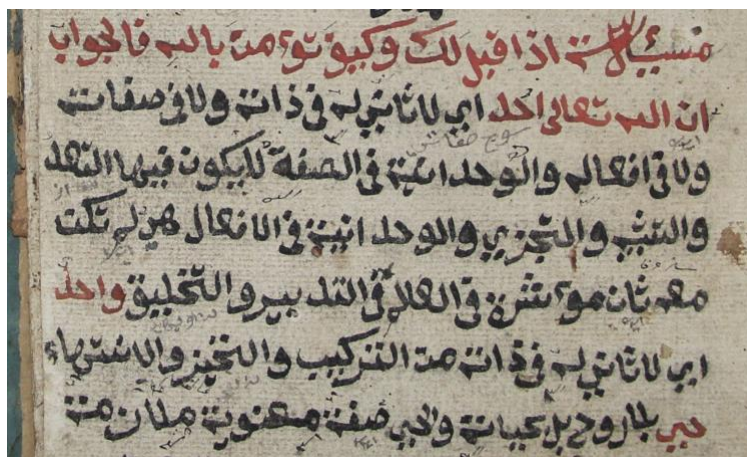 مسئلة اذا قيل لك وكيف تؤمن بالله فالجواب
ان الله تعالى احد اي لا ثاني له في ذاته ولا في صفاته
ولا في افعاله والوحدانية في الصفة لا يكون فيها التعد
والتشبيه والتجزي والوحدانية في الافعال هي لم تكن
معه ثان مؤثرة في العالم في التدبير والتخليق واحد
اي لا ثاني له في ذاته من التركيب والتحيز والانتهاء
حي بلا روح بل بحياته والحي صفة معنوية ملازمة